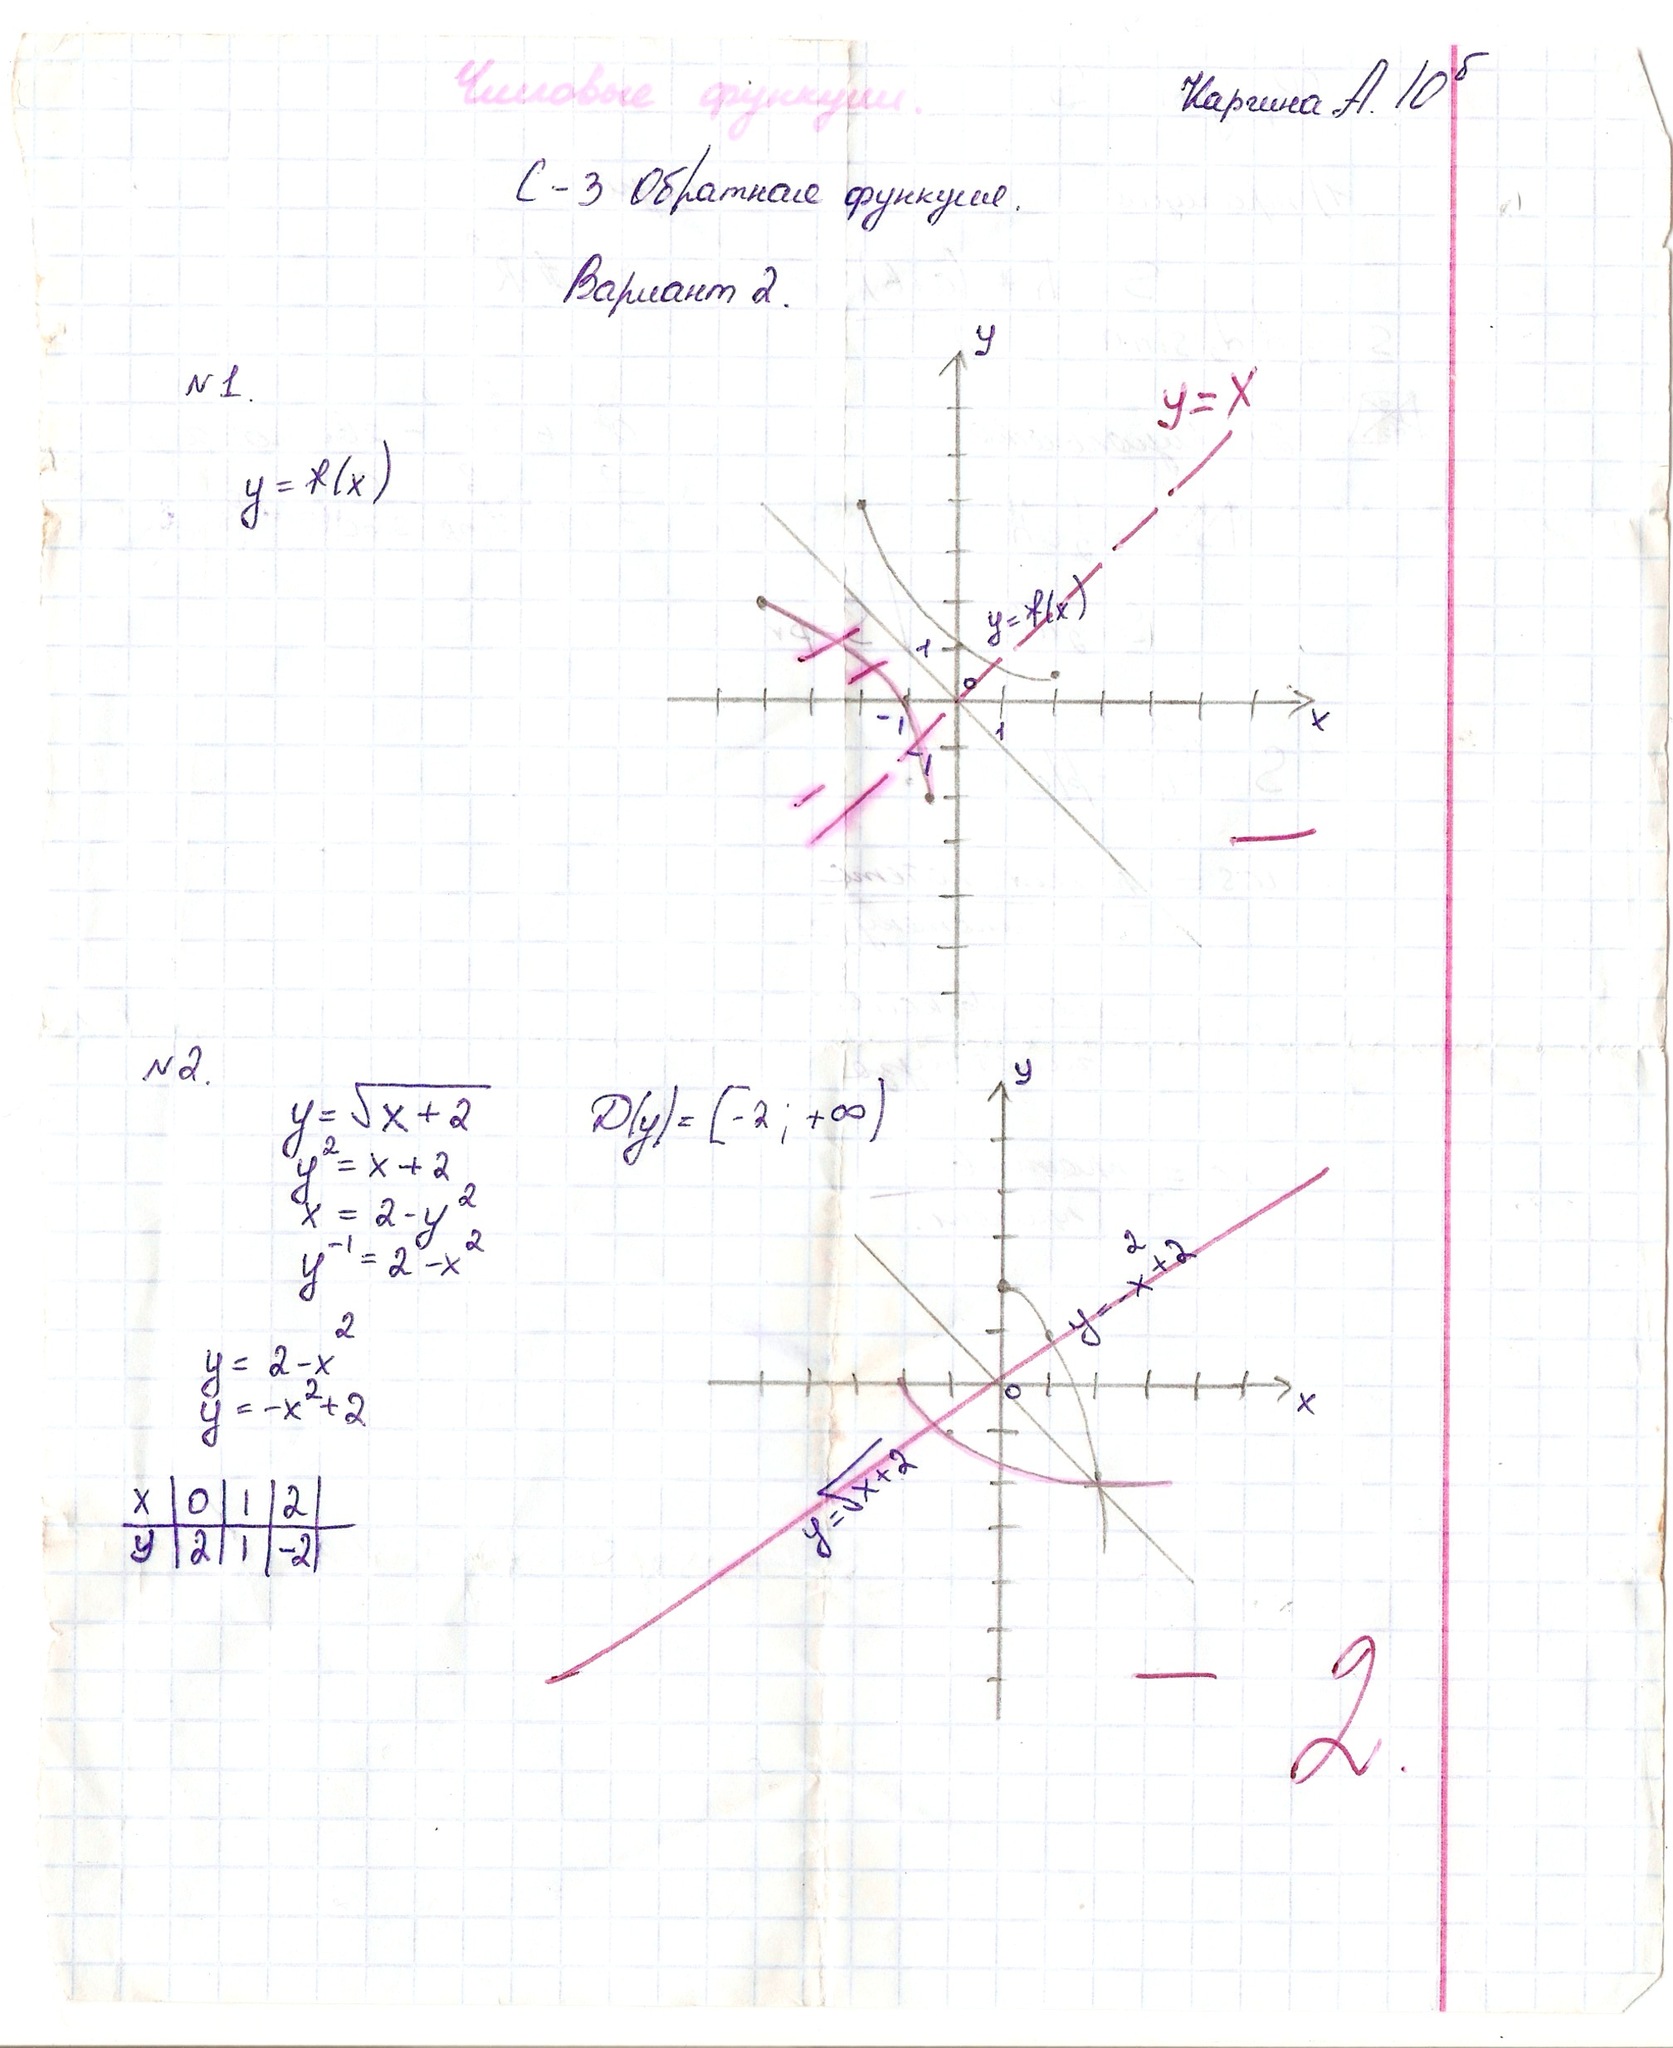 Числовые функции.
Каргина А. 10б
С-3 Обратная функция.
Вариант 2.
N1.
y = f(x)
y
y=x
y=f(x)
1
0
-1
1
x
-1
N2.
y = √x+2 D(y)=[-2; +∞)
y² = x+2
x = 2-y²
y⁻¹ = 2-x²
y = 2-x²
y = -x²+2
x | 0 | 1 | 2 |
y | 2 | 1 | -2 |
y
y=-x²+2
0
x
y=√x+2
2.